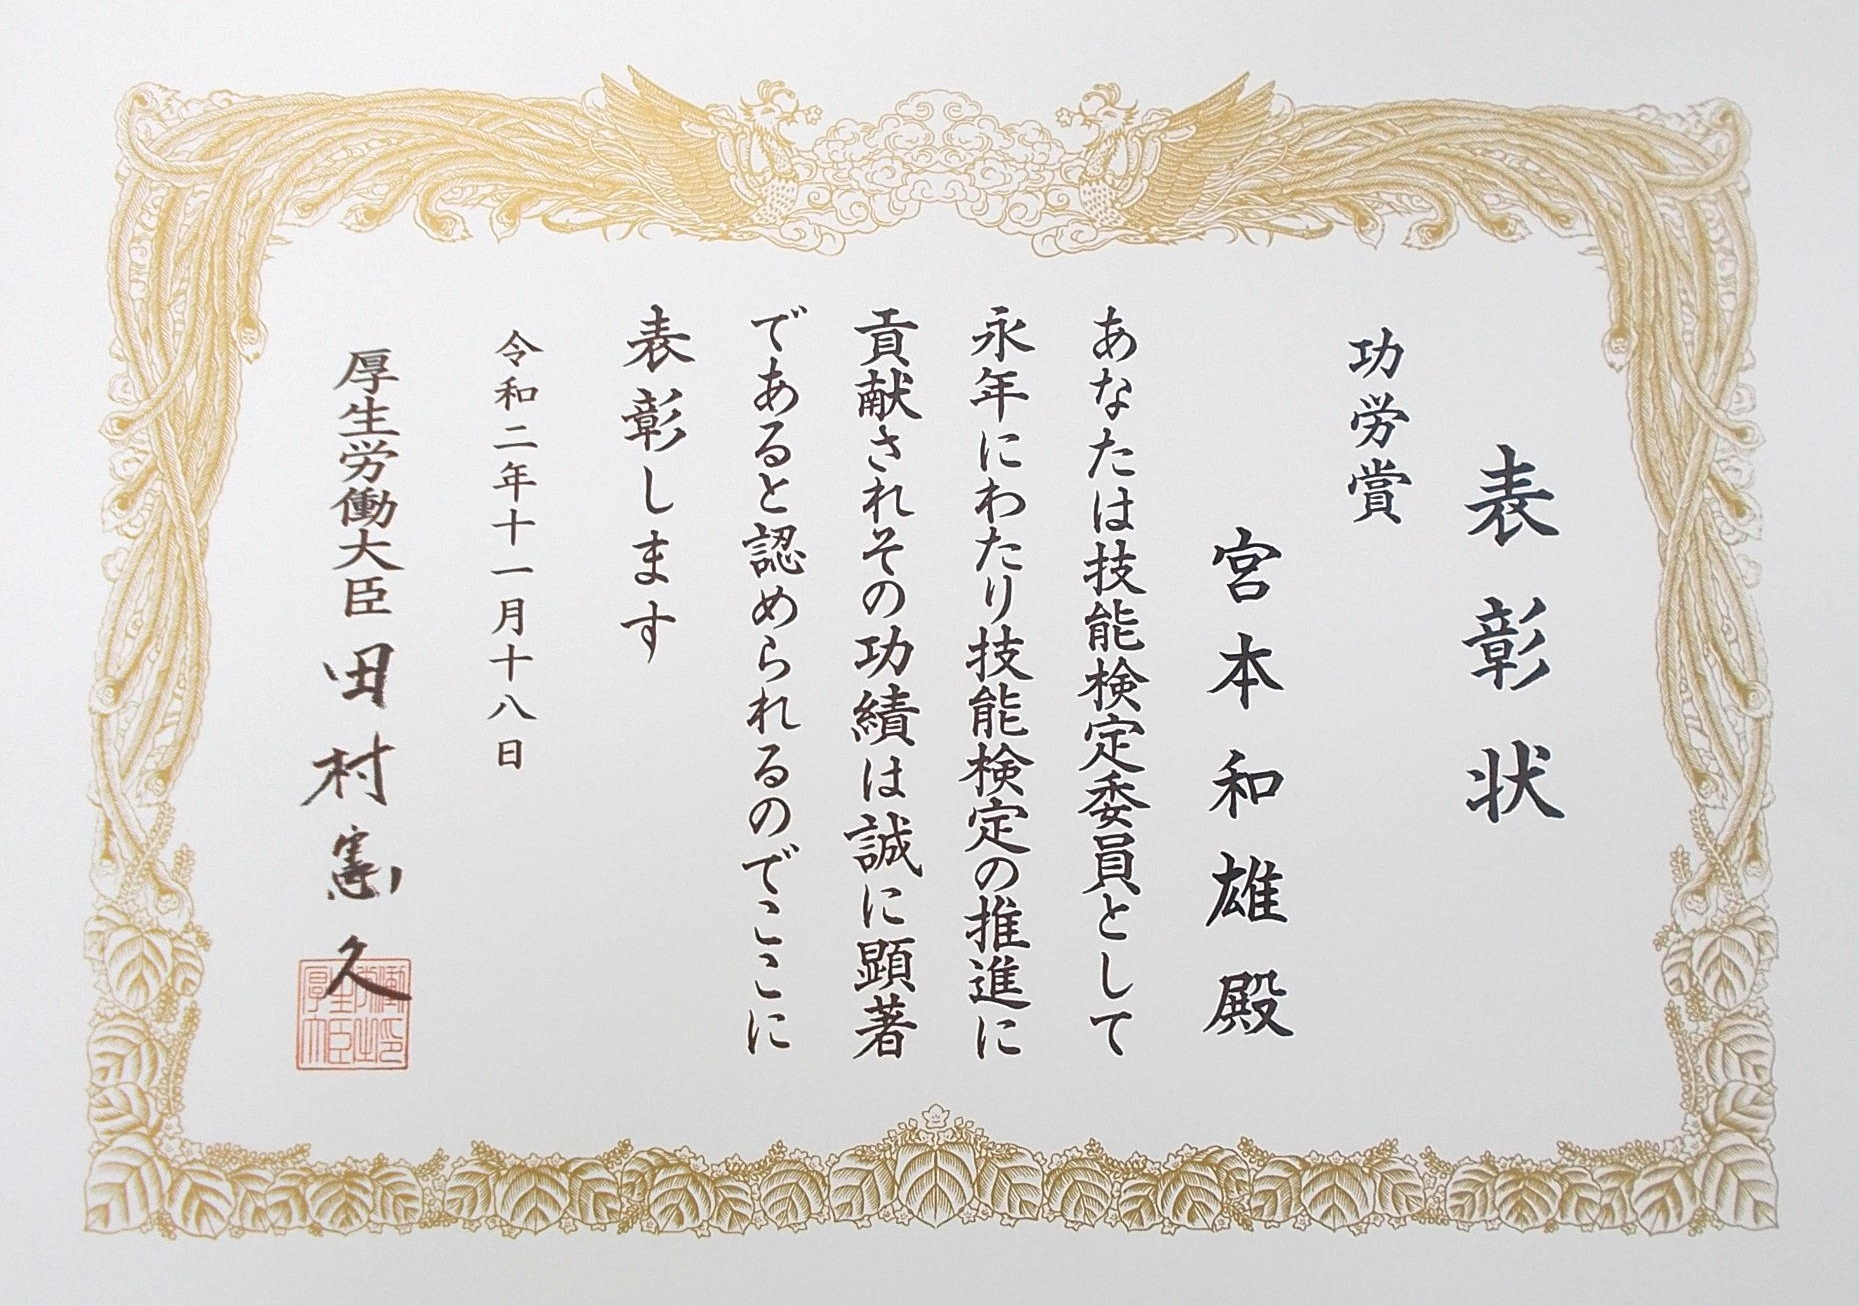 表彰状
功労賞
宮本和雄殿
あなたは技能検定委員として
永年にわたり技能検定の推進に
貢献されその功績は誠に顕著
であると認められるのでここに
表彰します
令和二年十一月十八日
厚生労働大臣 田村憲久